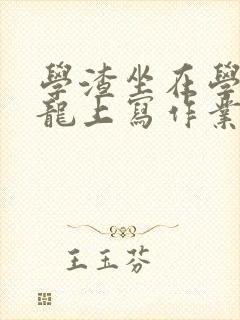 學渣坐在學
龍上寫作業
王玉芬